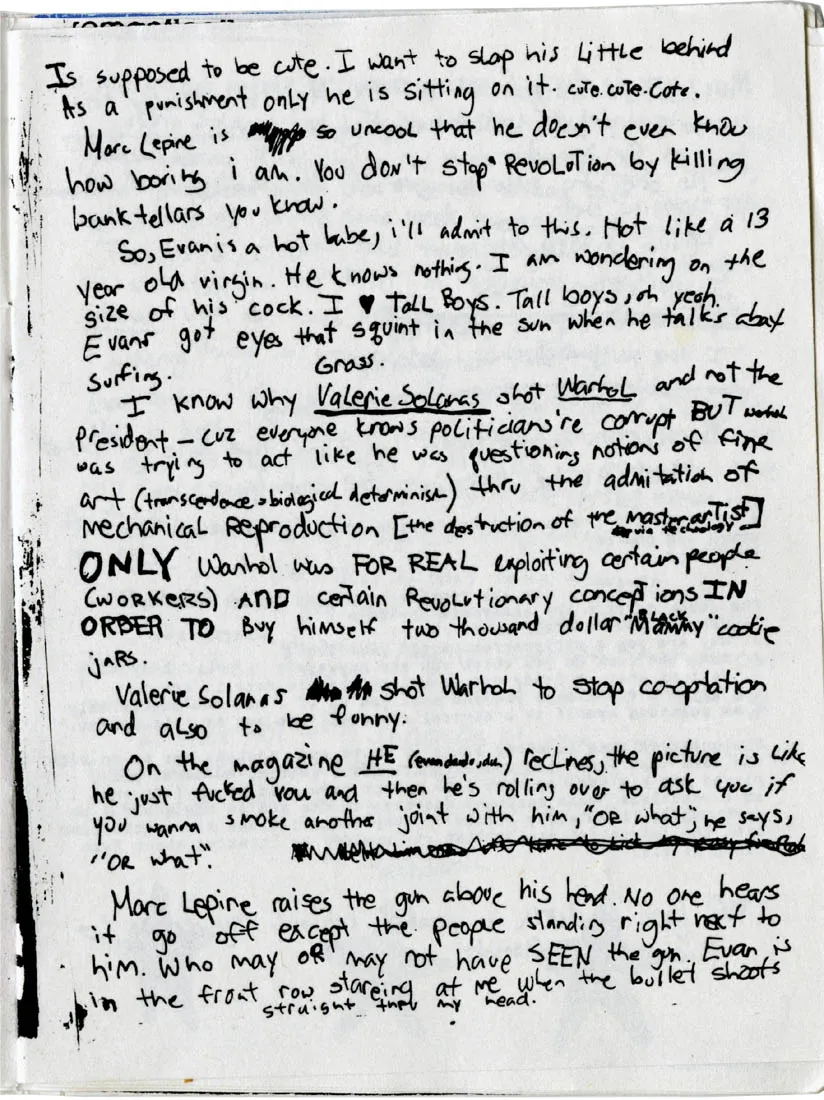 Is supposed to be cute. I want to slap his little behind
As a punishment only he is sitting on it. cute. cute. Cute.
Marc Lepine is so uncool that he doesn't even know
how boring i am. You don't stop Revolution by killing
bank tellars you know.
So, Evan is a hot babe, i'll admit to this. Hot like a 13
year old virgin. He knows nothing. I am wondering on the
size of his cock. I ♥ Tall Boys. Tall boys, oh yeah.
Evans got eyes that squint in the sun when he talks abay
surfing. Grass.
I know why Valerie Solanas shot Warhol and not the
President - cuz everyone knows politicians're corrupt BUT warhol
was trying to act like he was questioning notions of fine
art (transcendence > biological determinism) thru the admitation of
Mechanical Reproduction [the destruction of the master artist]
via technology
ONLY Warhol was FOR REAL exploiting certain people
(WORKERS) AND certain Revolutionary conceptions IN
ORDER TO Buy himself two thousand dollar "BLACK Mammy" cookie
jars.
Valerie Solanas shot Warhol to stop co-optation
and also to be funny.
On the magazine HE (evan dando, duh) reclines, the picture is like
he just fucked you and then he's rolling over to ask you if
you wanna smoke another joint with him, "OR what", he says,
"OR what".
Marc Lepine raises the gun above his head. No one hears
it go off except the people standing right next to
him. Who may OR may not have SEEN the gun. Evan is
in the front row stareing at me when the bullet shoots
straight thru my head.